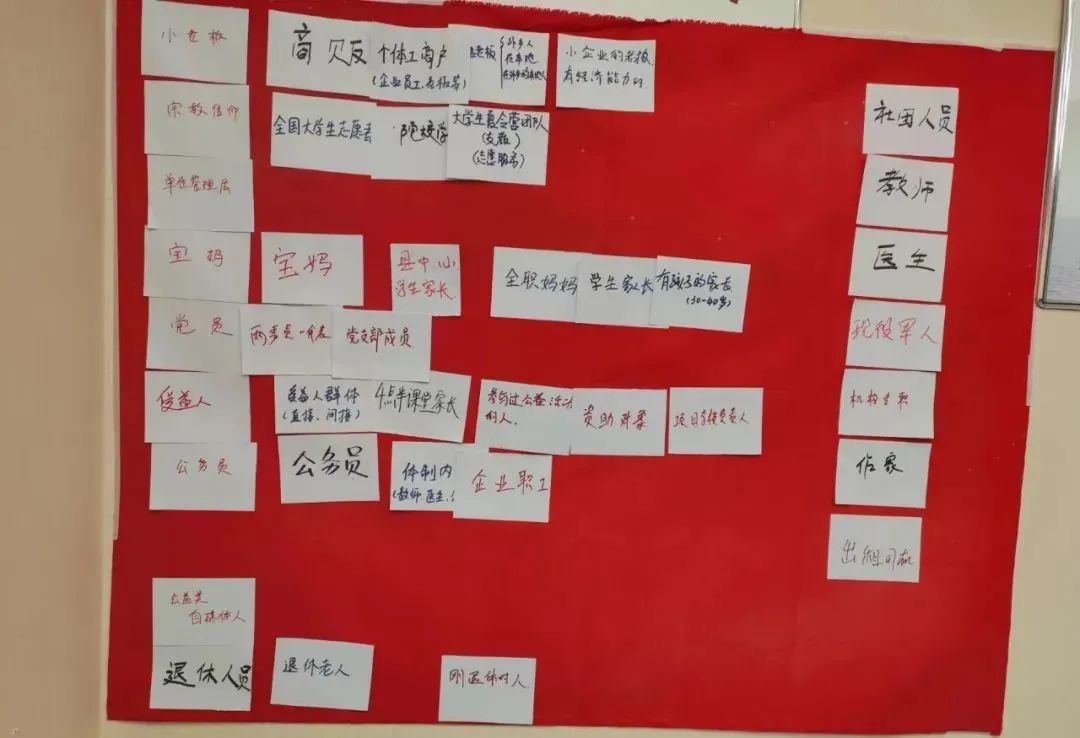 小老板
商贩
个体工商户
(企业员工、老板等)
老板
外乡人
在本地
小企业的老板,
有经济能力的.
宗教信仰
全国大学生志愿者
大学生夏令营团队
(支教)
(志愿服务)
单位管理层
宝妈
宝妈
县中、小
学生家长.
全职妈妈
学生家长
有孩子的家长
(30-40岁)
党员
两委员一代表
党支部成员
受益人
受益人群体
(直接、间接)
4点半课堂家长
参与过公益活动
的人.
资助对象
项目直接负责人
公务员
公务员
体制内
(教师.医生.
企业职工
公益类
自媒体人
退休人员
退休老人
刚退休的人
社团人员
教师
医生
现役军人
机构专职
作家
出租司机